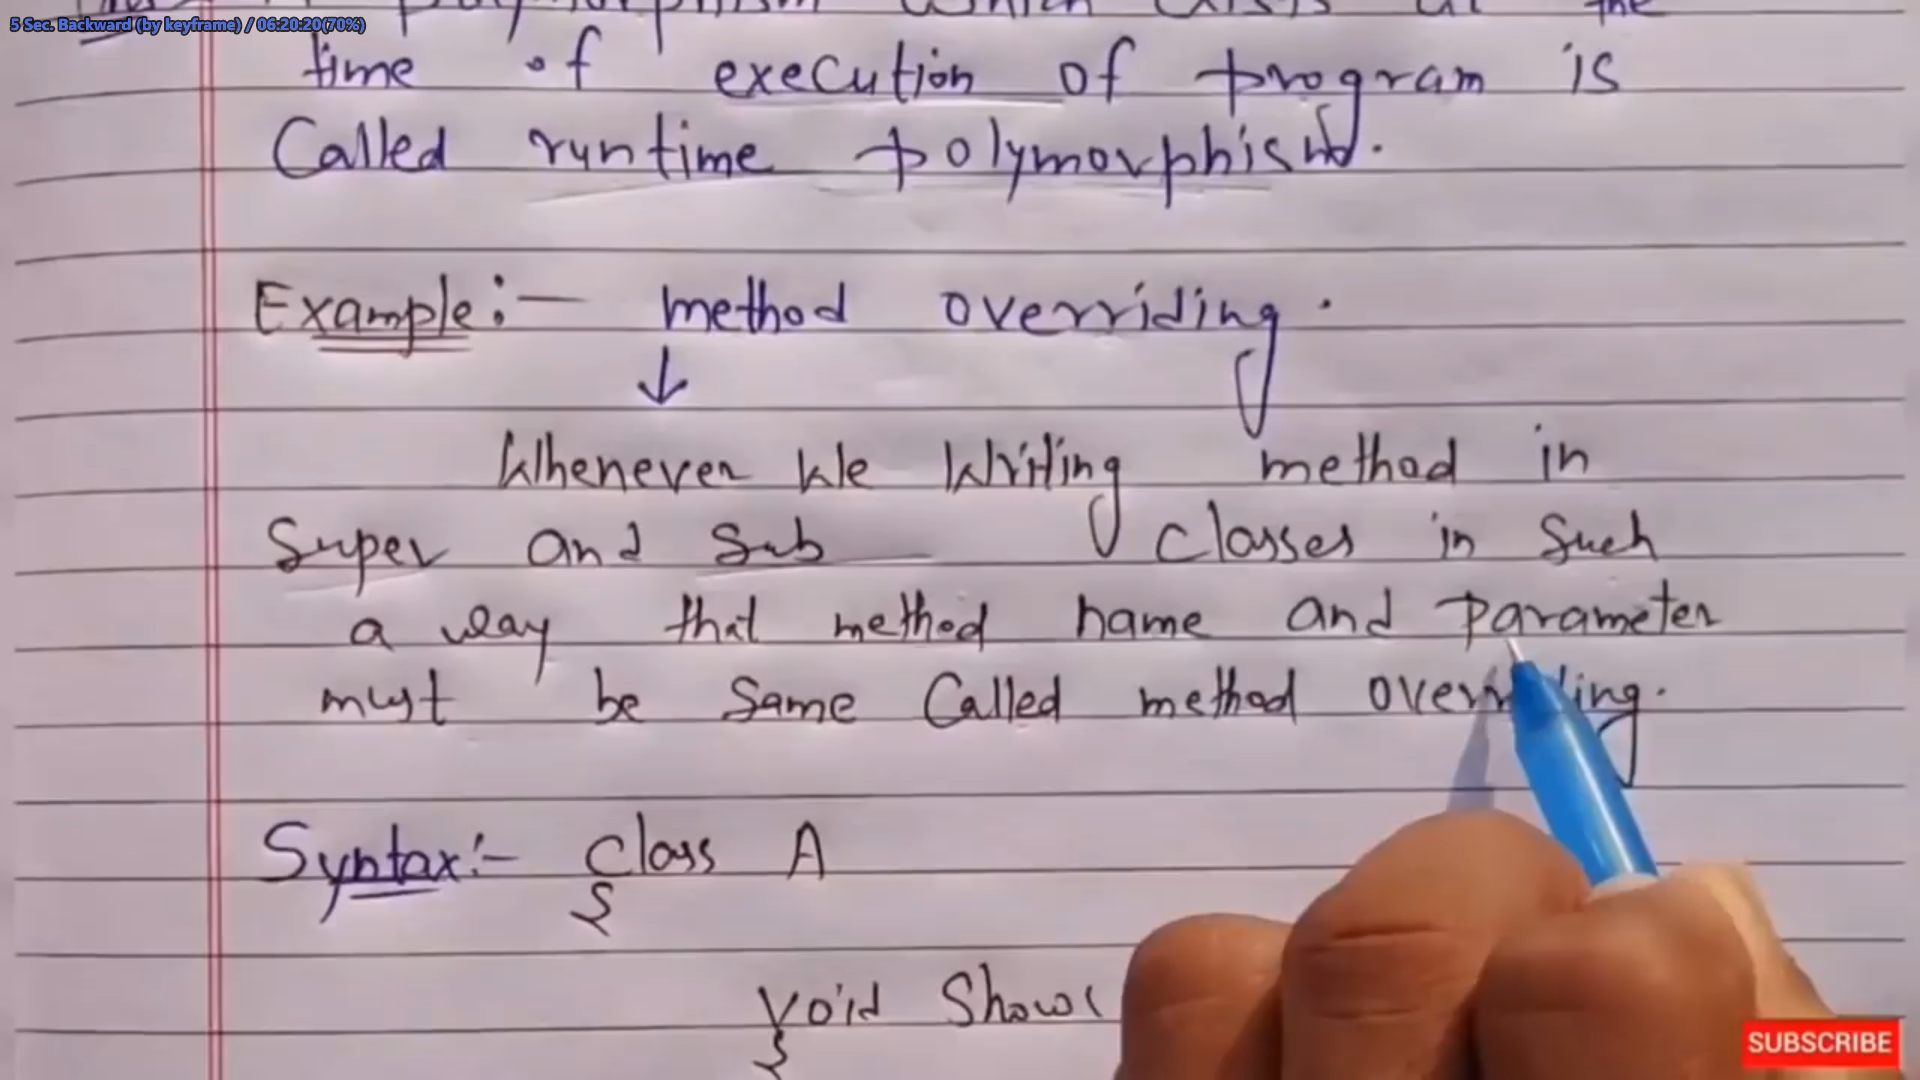 5 Sec. Backward (by keyframe) / 06:20:20(70%)
polymorphism which exists at the
time of execution of program is
Called runtime polymorphism.
Example:- method overriding.
↓
Whenever we writing method in
Super and Sub classes in Such
a way that method name and parameter
must be Same Called method overriding.
Syntax:- Class A
{
Void Show(
{
SUBSCRIBE